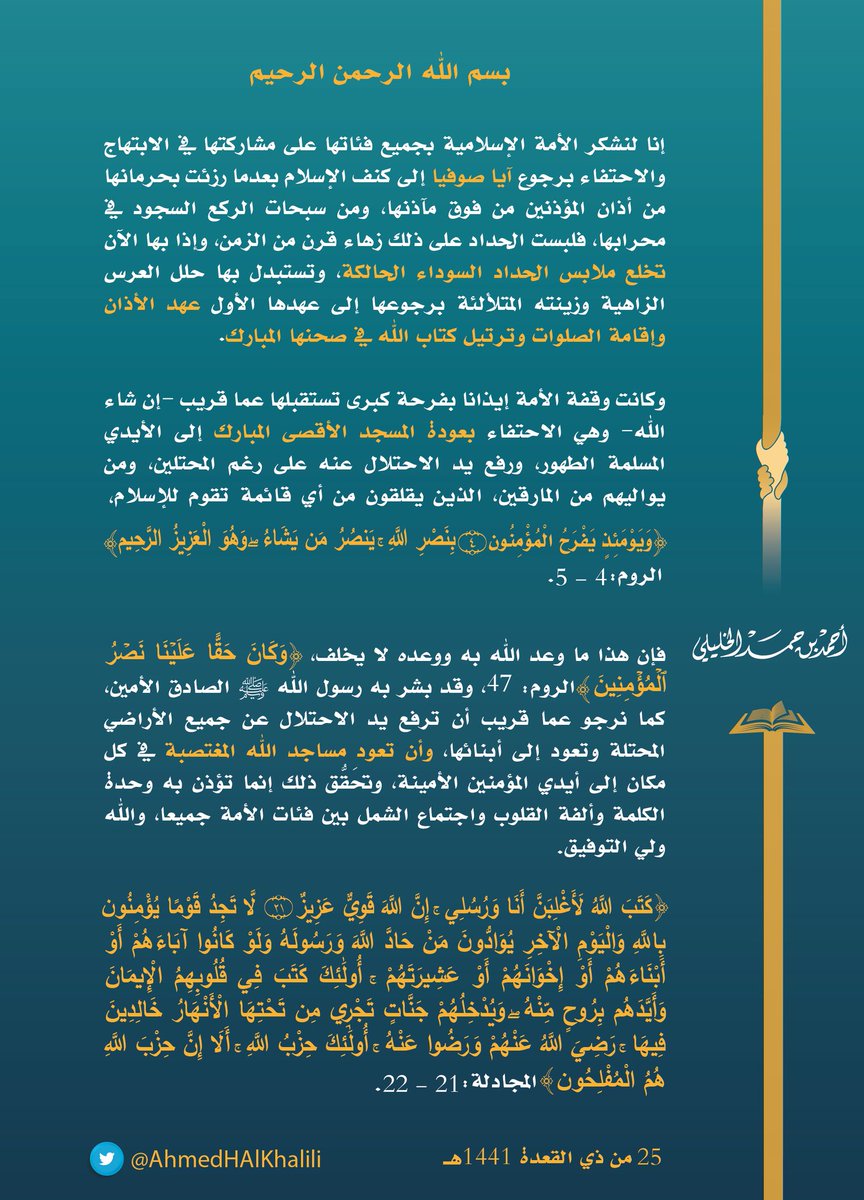 بسم الله الرحمن الرحيم
إنا لنشكر الأمة الإسلامية بجميع فئاتها على مشاركتها في الابتهاج
والاحتفاء برجوع آيا صوفيا إلى كنف الإسلام بعدما رزئت بحرمانها
من أذان المؤذنين من فوق مآذنها، ومن سبحات الركع السجود في
محرابها، فلبست الحداد على ذلك زهاء قرن من الزمن، وإذا بها الآن
تخلع ملابس الحداد السوداء الحالكة، وتستبدل بها حلل العرس
الزاهية وزينته المتلألئة برجوعها إلى عهدها الأول عهد الأذان
وإقامة الصلوات وترتيل كتاب الله في صحنها المبارك.
وكانت وقفة الأمة إيذانا بفرحة كبرى تستقبلها عما قريب -إن شاء
الله- وهي الاحتفاء بعودة المسجد الأقصى المبارك إلى الأيدي
المسلمة الطهور، ورفع يد الاحتلال عنه على رغم المحتلين، ومن
يواليهم من المارقين، الذين يقلقون من أي قائمة تقوم للإسلام،
﴿وَيَوْمَئِذٍ يَفْرَحُ الْمُؤْمِنُون۝٤ بِنَصْرِ اللَّهِ ۚ يَنصُرُ مَن يَشَاءُ ۖ وَهُوَ الْعَزِيزُ الرَّحِيم﴾
الروم: 4 - 5.
فإن هذا ما وعد الله به ووعده لا يخلف، ﴿وَكَانَ حَقًّا عَلَيْنَا نَصْرُ
ٱلْمُؤْمِنِينَ﴾ الروم: 47، وقد بشر به رسول الله ﷺ الصادق الأمين،
كما نرجو عما قريب أن ترفع يد الاحتلال عن جميع الأراضي
المحتلة وتعود إلى أبنائها، وأن تعود مساجد الله المغتصبة في كل
مكان إلى أيدي المؤمنين الأمينة، وتحَقُّق ذلك إنما تؤذن به وحدة
الكلمة وألفة القلوب واجتماع الشمل بين فئات الأمة جميعا، والله
ولي التوفيق.
﴿كَتَبَ اللَّهُ لَأَغْلِبَنَّ أَنَا وَرُسُلِي ۚ إِنَّ اللَّهَ قَوِيٌّ عَزِيزٌ ۝٢١ لَّا تَجِدُ قَوْمًا يُؤْمِنُون
بِاللَّهِ وَالْيَوْمِ الْآخِرِ يُوَادُّونَ مَنْ حَادَّ اللَّهَ وَرَسُولَهُ وَلَوْ كَانُوا آبَاءَهُمْ أَوْ
أَبْنَاءَهُمْ أَوْ إِخْوَانَهُمْ أَوْ عَشِيرَتَهُمْ ۚ أُولَٰئِكَ كَتَبَ فِي قُلُوبِهِمُ الْإِيمَانَ
وَأَيَّدَهُم بِرُوحٍ مِّنْهُ ۖ وَيُدْخِلُهُمْ جَنَّاتٍ تَجْرِي مِن تَحْتِهَا الْأَنْهَارُ خَالِدِينَ
فِيهَا ۚ رَضِيَ اللَّهُ عَنْهُمْ وَرَضُوا عَنْهُ ۚ أُولَٰئِكَ حِزْبُ اللَّهِ ۚ أَلَا إِنَّ حِزْبَ اللَّهِ
هُمُ الْمُفْلِحُون﴾ المجادلة: 21 - 22.
أحمد بن حمد الخليلي
25 من ذي القعدة 1441هـ
@AhmedHAlKhalili